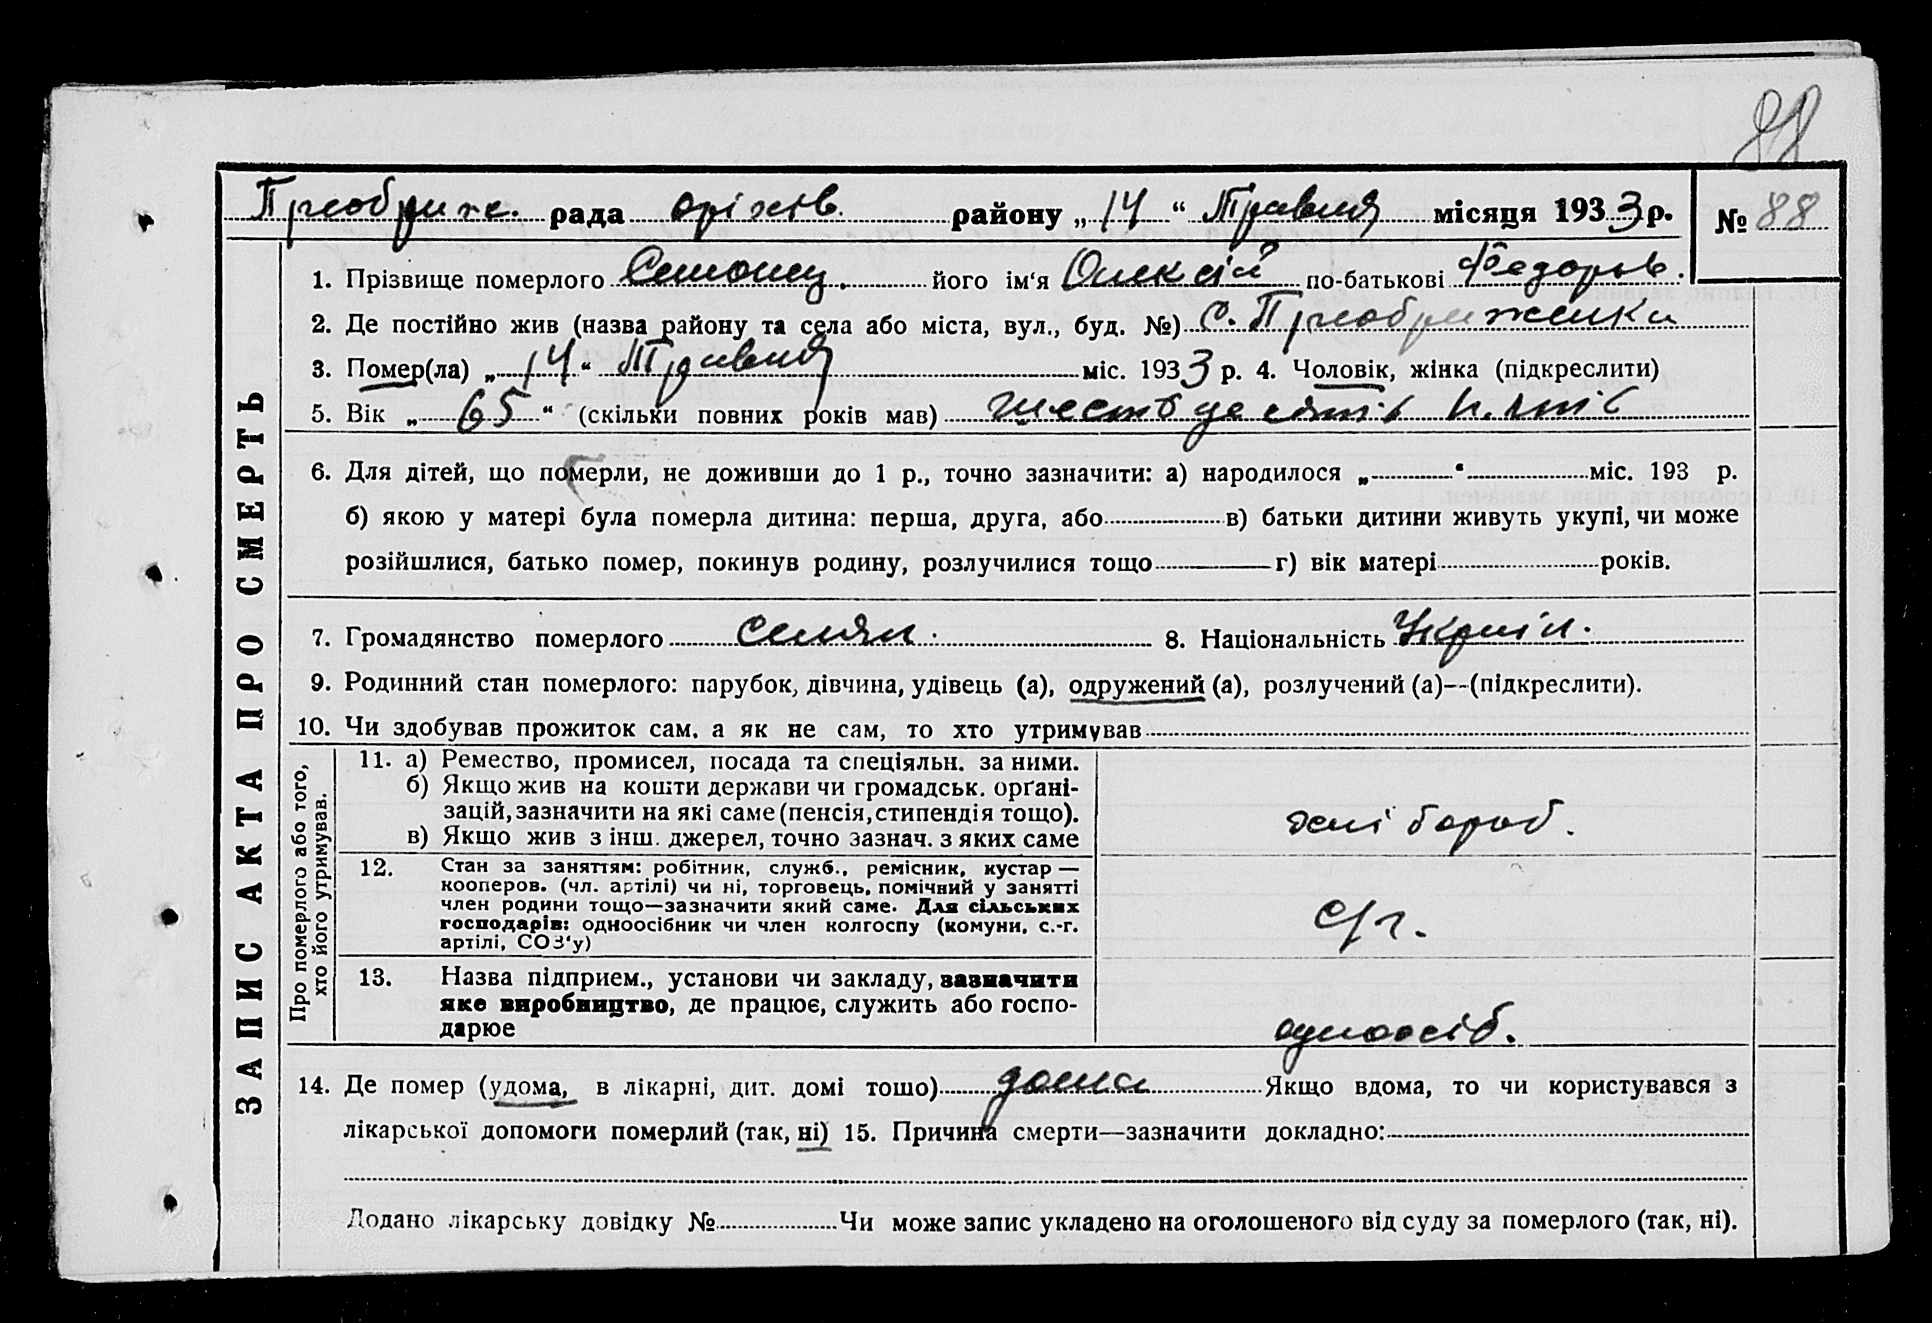 88
Преображе. рада оріхів. району „14“ Травня місяця 1933 р. № 88
1. Прізвище померлого його ім‘я Олексій по-батькові Федоров.
2. Де постійно жив (назва району та села або міста, вул., буд. №) с. Преображенка
3. Помер(ла) „14“ Травня міс. 1933 р. 4. Чоловік, жінка (підкреслити)
5. Вік „65“ (скільки повних років мав) шестьдесять пять
6. Для дітей, що померли, не доживши до 1 р., точно зазначити: а) народилося „ “ міс. 193 р.
б) якою у матері була померла дитина: перша, друга, або в) батьки дитини живуть укупі, чи може
розійшлися, батько помер, покинув родину, розлучилися тощо г) вік матері років.
7. Громадянство померлого селян. 8. Національність Україн.
9. Родинний стан померлого: парубок, дівчина, удівець (а), одружений (а), розлучений (а)—(підкреслити).
10. Чи здобував прожиток сам, а як не сам, то хто утримував
ЗАПИС АКТА ПРО СМЕРТЬ
Про померлого або того,
хто його утримував.
11. а) Рeмество, промисел, посада та спеціяльн. за ними.
б) Якщо жив на кошти держави чи громадськ. орґані-
зацій, зазначити на які саме (пенсія, стипендія тощо).
в) Якщо жив з інш. джерел, точно зазнач. з яких саме
хлібороб.
12. Стан за заняттям: робітник, служб., ремісник, кустар —
кооперов. (чл. артілі) чи ні, торговець, помічний у занятті
член родини тощо—зазначити який саме. Для сільських
господарів: одноосібник чи член колгоспу (комуни, с.-г.
артілі, СОЗ‘у)
с/г.
13. Назва підприєм., установи чи закладу, зазначити
яке виробництво, де працює, служить або госпо-
дарює
одноосіб.
14. Де помер (удома, в лікарні, дит. домі тощо) дома Якщо вдома, то чи користувався з
лікарської допомоги померлий (так, ні) 15. Причина смерти—зазначити докладно:
Додано лікарську довідку № Чи може запис укладено на оголошеного від суду за померлого (так, ні).